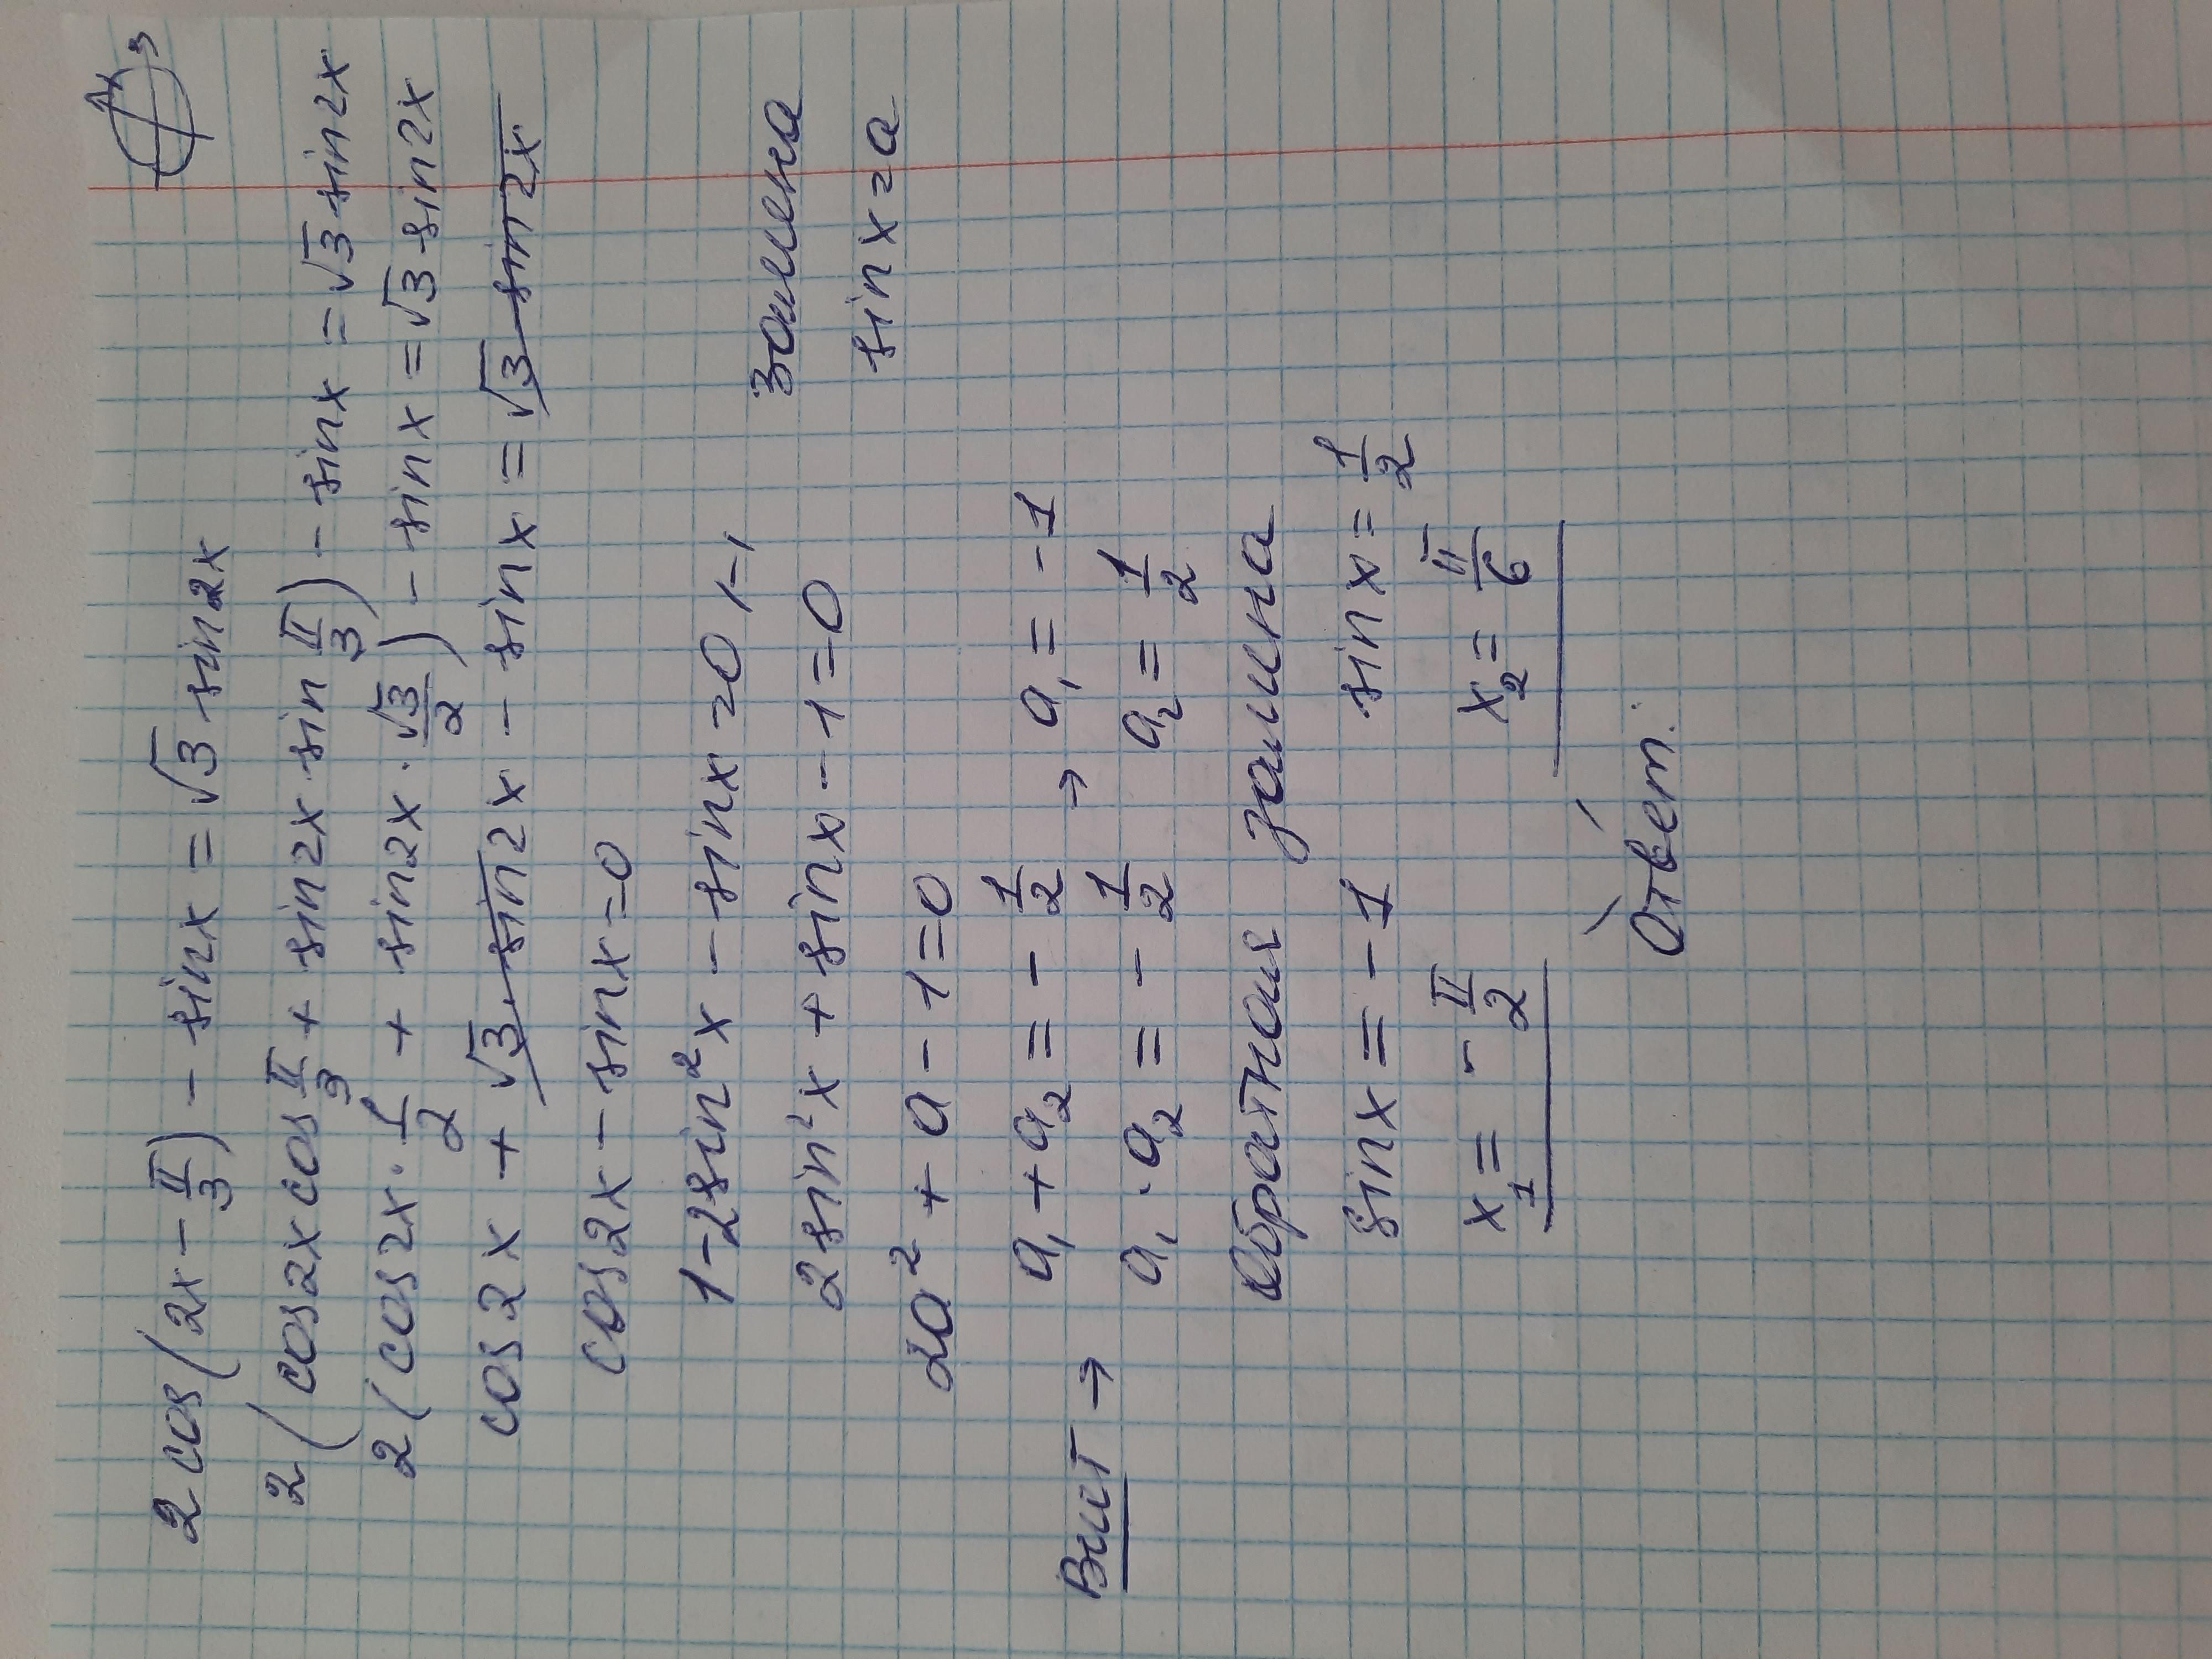 2 cos(2x - π/3) - sinx = √3 sin2x
2(cos2x cos π/3 + sin2x · sin π/3) - sinx = √3 sin2x
2(cos2x · 1/2 + sin2x · √3/2) - sinx = √3 sin2x
cos2x + √3 · sin2x - sinx = √3 sin2x
cos2x - sinx = 0
1 - 2sin²x - sinx = 0 | · -1
2sin²x + sinx - 1 = 0
замена
2a² + a - 1 = 0
sinx = a
Виет → a₁ + a₂ = - 1/2 → a₁ = -1
a₁ · a₂ = - 1/2 a₂ = 1/2
Обратная замена
sinx = -1 sinx = 1/2
x₁ = - π/2 x₂ = π/6
Ответ: